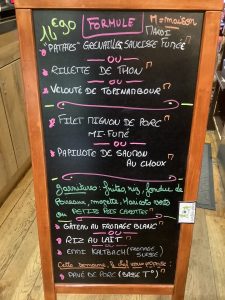 14€90 FORMULE M = maison
MARDI
"PATATES" GRENAILLES, SAUCISSE FUMÉE M
OU
RILLETTE DE THON M
OU
VELOUTÉ DE TOPINAMBOUR M
FILET MIGNON DE PORC M
MI-FUMÉ
OU
PAPILLOTE DE SAUMON M
AU CHOUX
Garnitures : frites, riz, fondue de
Poireaux, mogette, Haricots verts
ou PETITS POIS CAROTTE M
GÂTEAU AU FROMAGE BLANC M
OU
RIZ AU LAIT M
OU
EMMI KALTBACH (FROMAGE
SUISSE)
Cette semaine, le chef vous propose :
PAVÉ DE PORC (BASSE T°) M